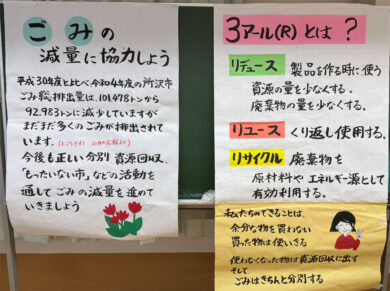 ごみの
減量に協力しよう
平成30年度と比べ令和4年度の所沢市
ごみ総排出量は、101,478トンから
92,983トンに減少していますが
まだまだ多くのごみが排出されて
います。(ところざわ 10月の広報より)
今後も正しい分別 資源回収、
「もったいない市」などの活動を
通して ごみの減量を進めて
いきましょう
3アール(R)とは?
リデュース 製品を作る時に使う
資源の量を少なくする、
廃棄物の量を少なくする。
リユース くり返し使用する。
リサイクル 廃棄物を
原材料や エネルギー源として
有効利用する。
私たちのできることは、
余分な物を買わない
買った物は使いきる
使わなくなった物は資源回収に出す
そして
ごみはきちんと分別する